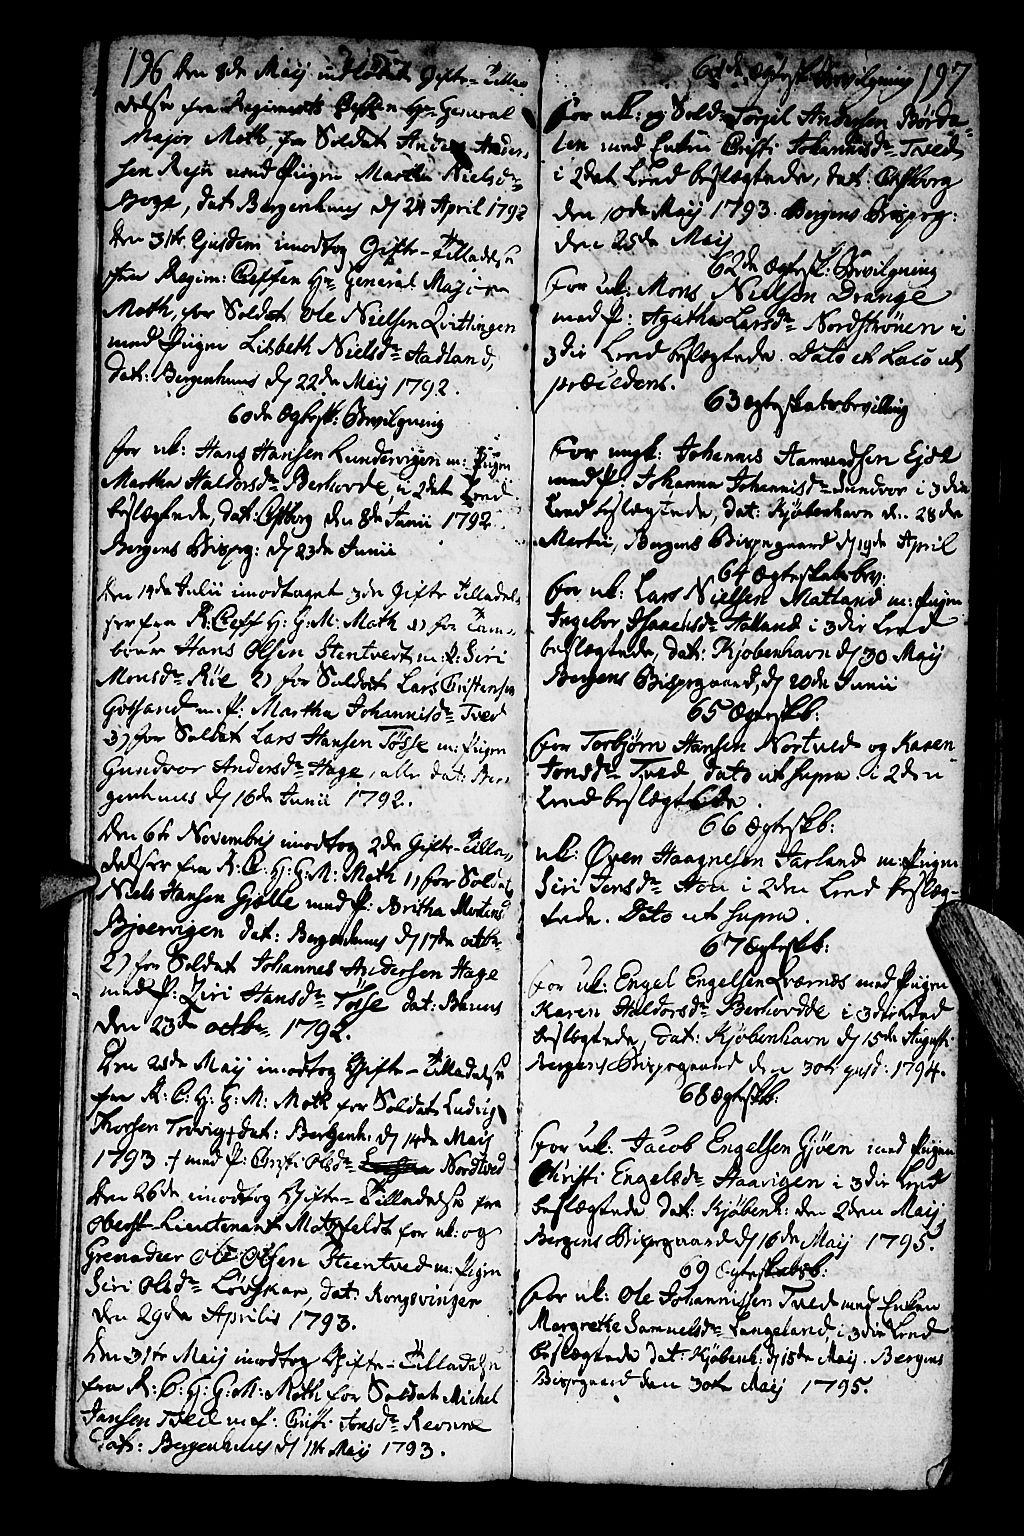 196 Den 8de Maij indløbet Gifte-Tilla-
delse fra Regiments Cheffen Hr General
Major Moth, for Soldat Anders Anders-
sen Reju med Pigen Martha Nielsdr
Berge, dat. Bergenhuus d/ 24 April 1792
Den 31te Ejusdem imodtog Gifte-Tilladelse
fra Regim: Cheffen Hr General Major
Moth, for Soldat Ole Nielsen Qvittingen
med Pigen Lisbeth Nielsdr Aadland,
dat: Bergenhuus d/ 22de Maij 1792.
60de Ægtesk: Bevilgning
for uk: Hans Hansen Lundervigen m: Pigen
Martha Haldorsdr Berhovde, i 2det Leed
beslægtede, dat: Chsborg den 8de Junii 1792.
Bergens Bispg: d/ 23de Junii
Den 19de Julii imodtaget 3de Gifte Tilladel-
ser fra R: Cheff H: G: M: Moth 1) for Tam-
bour Hans Olsen Stentvedt, m: P: Siri
Monsdr Röe 2) for Soldat Lars Christensen
Gotland m. P: Martha Johannisdr Tved
3) for Soldat Lars Hansen Tösse m: Pigen
Gundvor Andersdr Hage, alle dat: Ber-
genhuus d/ 16de Junii 1792.
Den 6te Novembris imodtog 2de Gifte-Tilla-
delser fra R: C: H: G: M: Moth 1) for Soldat
Niels Hansen Gjölle med P: Britha Mortensd
Bjoervigen dat: Bergenhuus d/ 17de octbr:
2) for Soldat Johannes Andersen Hage
med P: Ziri Hansdr Tösse dat: Bhuus
den 23de octbr 1792.
Den 21de Maij imodtog Gifte-Tilladelse
fra R: C: H: G: M: Moth for Soldat Ludvig
Thorsen Trovig † dat: Bergenh: d/ 14de Maij
1793 † med P: Christi Olsdr Nordtved
Den 26de imodtog Gifte-Tilladelse fra
Oberst-Lieutenant Motzfeldt for uk: og
Grenadeer Ole Olsen Steentved m: Pigen
Siri Olsdr Lövskar, dat: Kongsvinger
den 29de Aprilis 1793.
Den 31te Maij imodtog Gifte-Tilladelse
fra R: C: H: G: M: Moth for Soldat Michel
Jansen Tved m. P: Christi Jonsdr Revnne
dat: Bergenhuus d/ 11te Maij 1793.
61de Ægtesk: Bevilgning 197
for uk: og Sold: Torgel Andersen Börda-
len med Enken Christi Johannisdr Tved
i 2det Leed beslægtede, dat: Chsborg
den 10de Maij 1793. Bergens Bispeg:
den 25de Maij
62de Ægtesk: Bevilgning
for uk: Mons Nielsen Drange
med P: Agatha Larsdr Nordströnen i
3die Leed beslægtede. Dato et Loco ut
præcedens.
63 Ægteskabsbevilling
for ungk: Johannis Aamundsen Ejde
med P: Johanna Johannisdr Sundvor i 3die
Leed beslægtede, dat: Kjöbenhavn d: 28de
Martii, Bergens Bispegaard d/ 19de April
64 Ægteskabsbev:
for uk: Lars Nielsen Matland m: Pigen
Ingebor Haaensdr Hatland i 3die Leed
beslægtede, dat: Kjöbenhavn d/ 30 Maij
Bergens Bispegaard, d/ 20de Junii
65 Ægteskb:
for Torbjörn Hansen Nortved og Karen
Jonsdr Tved, dato ut supra i 2den
Leed beslægtede.
66 Ægteskb:
uk: Öven Haagnesen Harland m: Pigen
Siri Jonsdr Hou i 2den Leed beslæg-
tede. Dato ut supra.
67 Ægteskb:
for uk: Engel Engelsen Qværnæs med Pigen
Karen Haldorsdr Berhovdde i 3die Leed
beslægtede, dat: Kjöbenhavn d/ 15de Augusti
Bergens Bispegaard den 30te ejusd: 1794.
68 Ægteskb:
for uk: Jacob Engelsen Gjöen med Pigen
Christi Engelsdr Haavigen i 3die Leed
beslægtede dat: Kjöbenh: den 2den Maij
Bergens Bispegaard d/ 16de Maij 1795.
69 Ægteskabsb:
for uk: Ole Johannissen Tved med Enken
Margrethe Samuelsdr Langeland i 3die Leed
beslægtede dat: Kjöbenh: d/ 15de Maij. Bergens
Bispegaard den 30te Maij 1795.